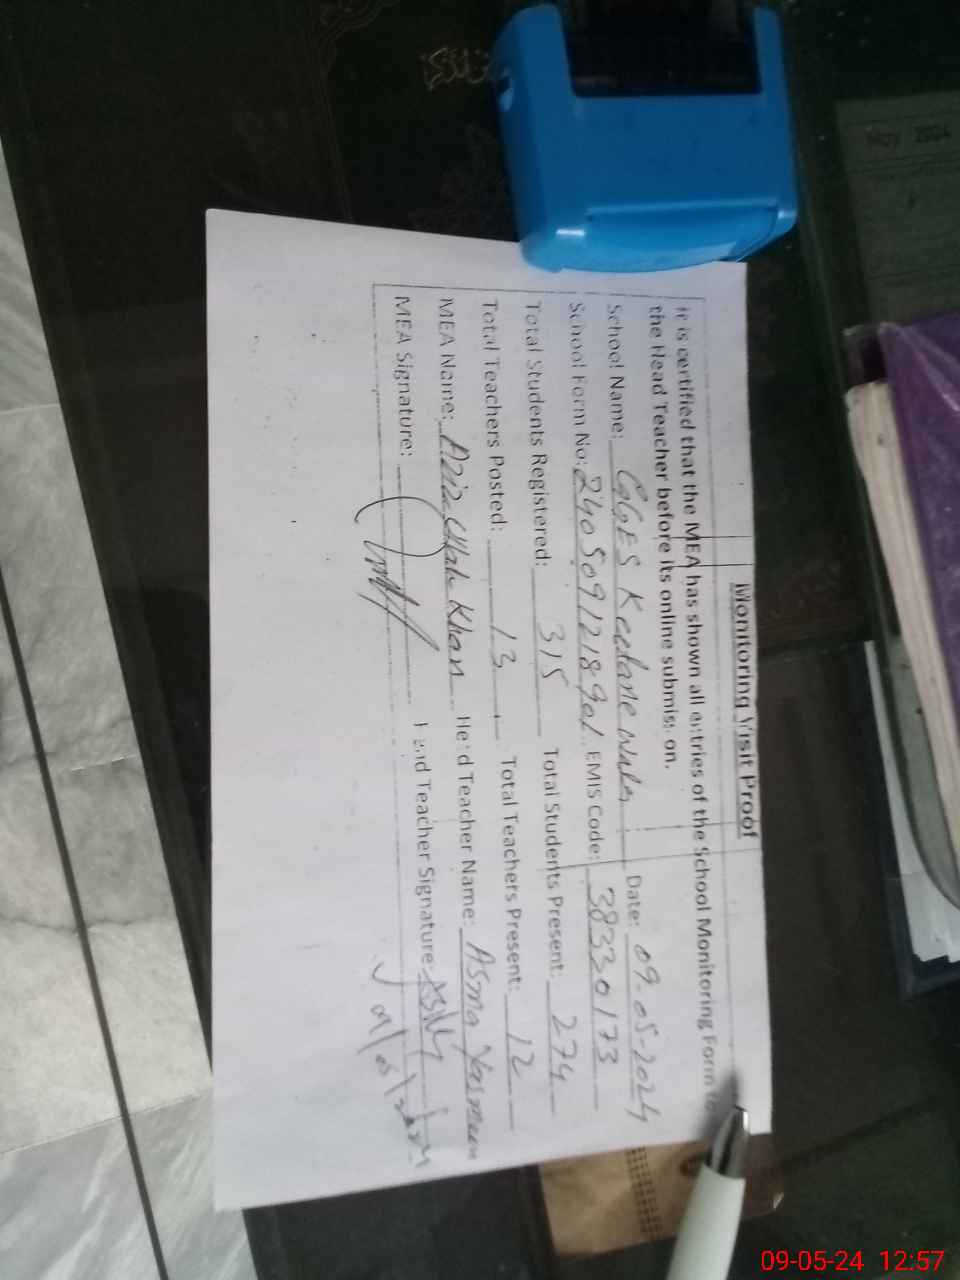 Monitoring Visit Proof
It is certified that the MEA has shown all entries of the School Monitoring Form to
the Head Teacher before its online submission.
School Name: GGES Date: 09-05-2024
School Form No: EMIS Code: 38330173
Total Students Registered: 315 Total Students Present: 274
Total Teachers Posted: 13 Total Teachers Present: 12
MEA Name: Aziz Ullah Khan Head Teacher Name: Asma Yasmeen
MEA Signature: Head Teacher Signature
Nov 2024
09-05-24 12:57